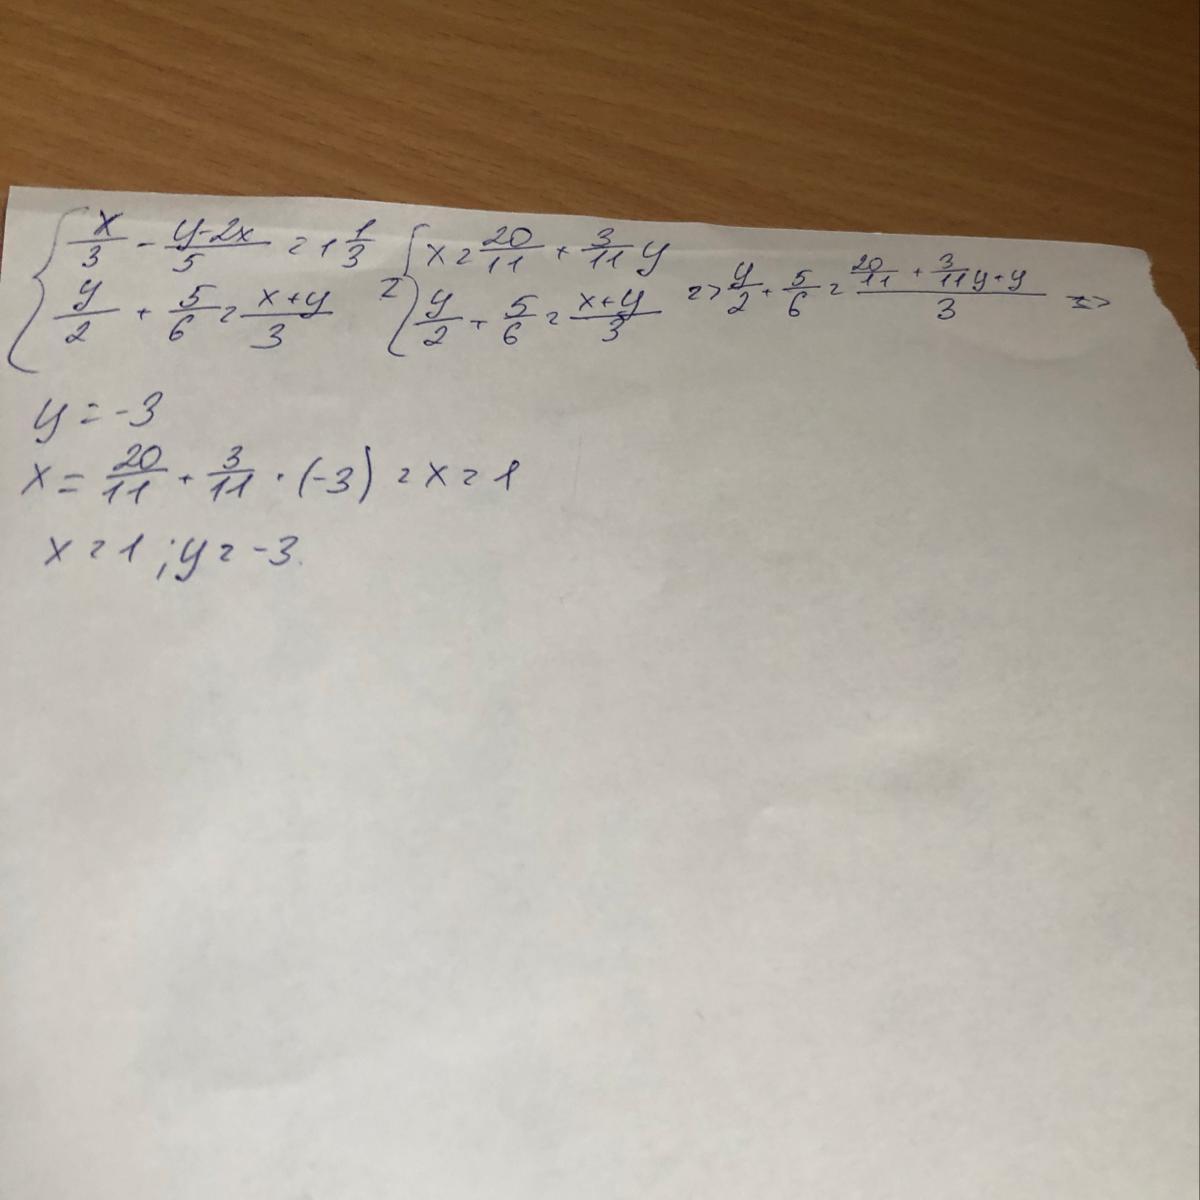 { x/3 - (y-2x)/5 = 1 1/3
y/2 + 5/6 = (x+y)/3
= { x = 20/11 + 3/11 y
y/2 + 5/6 = (x+y)/3
=> y/2 + 5/6 = (20/11 + 3/11 y + y)/3 =>
y = -3
x = 20/11 + 3/11 · (-3) = x = 1
x = 1 ; y = -3.